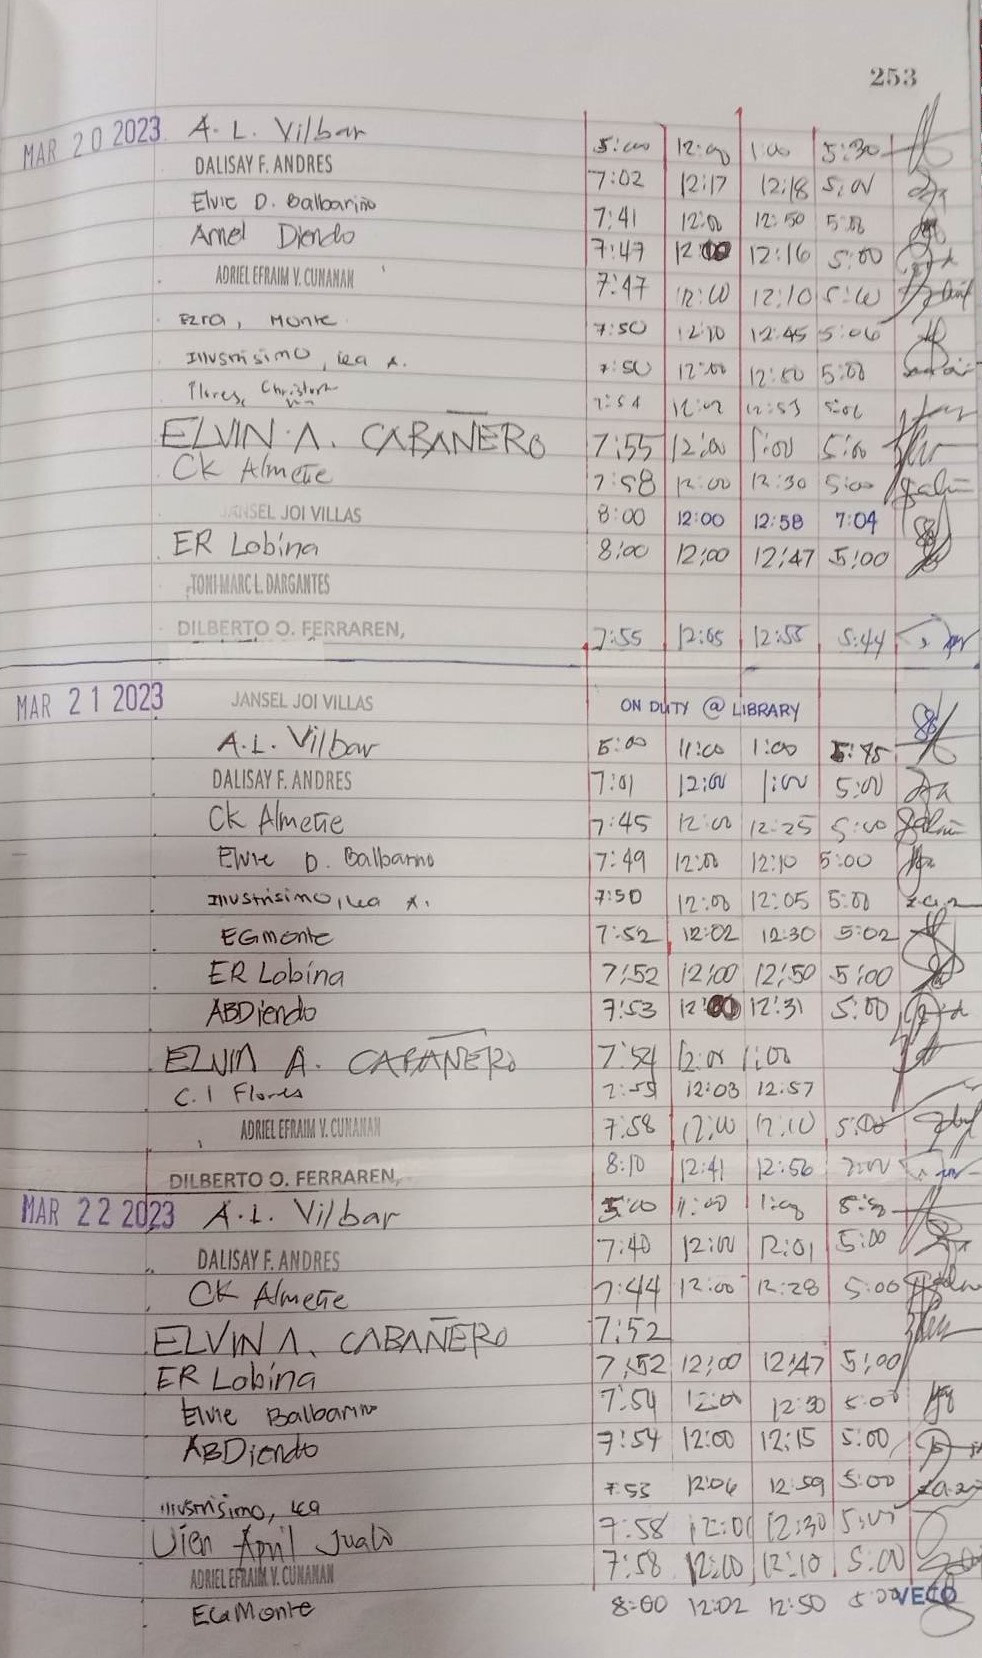 253
MAR 20 2023 A. L. Vilbar 5:00 12:00 1:00 5:30
DALISAY F. ANDRES 7:02 12:17 12:18 5:01
Elvie D. Balbarino 7:41 12:00 12:50 5:00
Arnel Diendo 7:47 12:00 12:16 5:00
ADRIEL EFRAIM V. CUNANAN 7:47 12:00 12:10 5:00
Ezra, Monte 7:50 12:10 12:45 5:06
Illustrisimo, Lea A. 7:50 12:00 12:50 5:00
Flores, 7:54 12:02 12:53
ELVIN A. CABAÑERO 7:55 12:00 1:00 5:00
CK Almeñe 7:58 12:00 12:30 5:00
JANSEL JOI VILLAS 8:00 12:00 12:58 7:04
ER Lobina 8:00 12:00 12:47 5:00
TONI MARC L. DARGANTES
DILBERTO O. FERRAREN, 7:55 12:05 12:55 5:44
MAR 21 2023 JANSEL JOI VILLAS ON DUTY @ LIBRARY
A.L. Vilbar 5:00 11:00 1:00
DALISAY F. ANDRES 7:01 12:00 1:00 5:00
CK Almeñe 7:45 12:00 12:25 5:00
Elvie D. Balbarino 7:49 12:00 12:10 5:00
Illustrisimo, Lea A. 7:50 12:00 12:05 5:00
EGmonte 7:52 12:02 12:30 5:02
ER Lobina 7:52 12:00 12:50 5:00
ABDiendo 7:53 12:00 12:31 5:00
ELVIN A. CABAÑERO 7:54 12:01 1:00
C. I Flores 7:55 12:03 12:57
ADRIEL EFRAIM V. CUNANAN 7:58 12:00 12:10 5:00
DILBERTO O. FERRAREN, 8:10 12:41 12:56 7:00
MAR 22 2023 A.L. Vilbar 5:00 11:00 1:00
DALISAY F. ANDRES 7:40 12:00 12:01 5:00
CK Almeñe 7:44 12:00 12:28 5:00
ELVIN A. CABAÑERO 7:52
ER Lobina 7:52 12:00 12:47 5:00
Elvie Balbarino 7:54 12:00 12:30 5:00
ABDiendo 7:54 12:00 12:15 5:00
Illustrisimo, Lea 7:53 12:06 12:59 5:00
Vien April Jualo 7:58 12:01 12:30 5:05
ADRIEL EFRAIM V. CUNANAN 7:58 12:00 12:10 5:00
EGaMonte 8:00 12:02 12:50 5:00 VECO